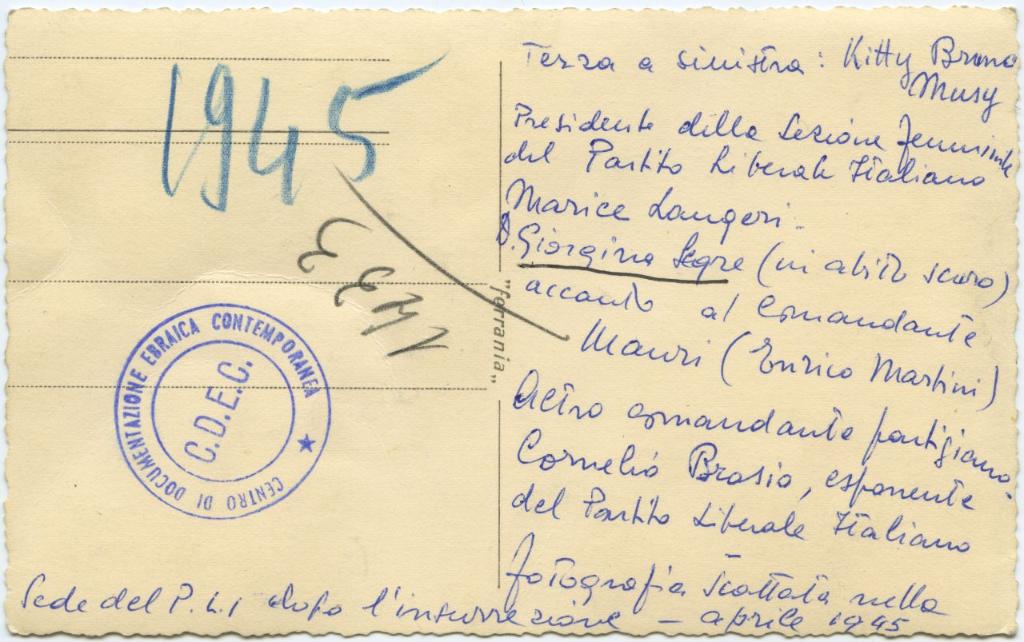 1945
1433
"ferrania"
CENTRO DI DOCUMENTAZIONE EBRAICA CONTEMPORANEA
C.D.E.C.
Terza a sinistra: Kitty Bruno
Musy
Presidente della Sezione femminile
del Partito Liberale Italiano
Marice Langeri
D. Giorgina Segre (in abito scuro)
accanto al Comandante
Mauri (Enrico Martini)
Altro comandante partigiano
Cornelio Brosio, esponente
del Partito Liberale Italiano
fotografia scattata nella
Sede del P.L.I dopo l'insurrezione - aprile 1945